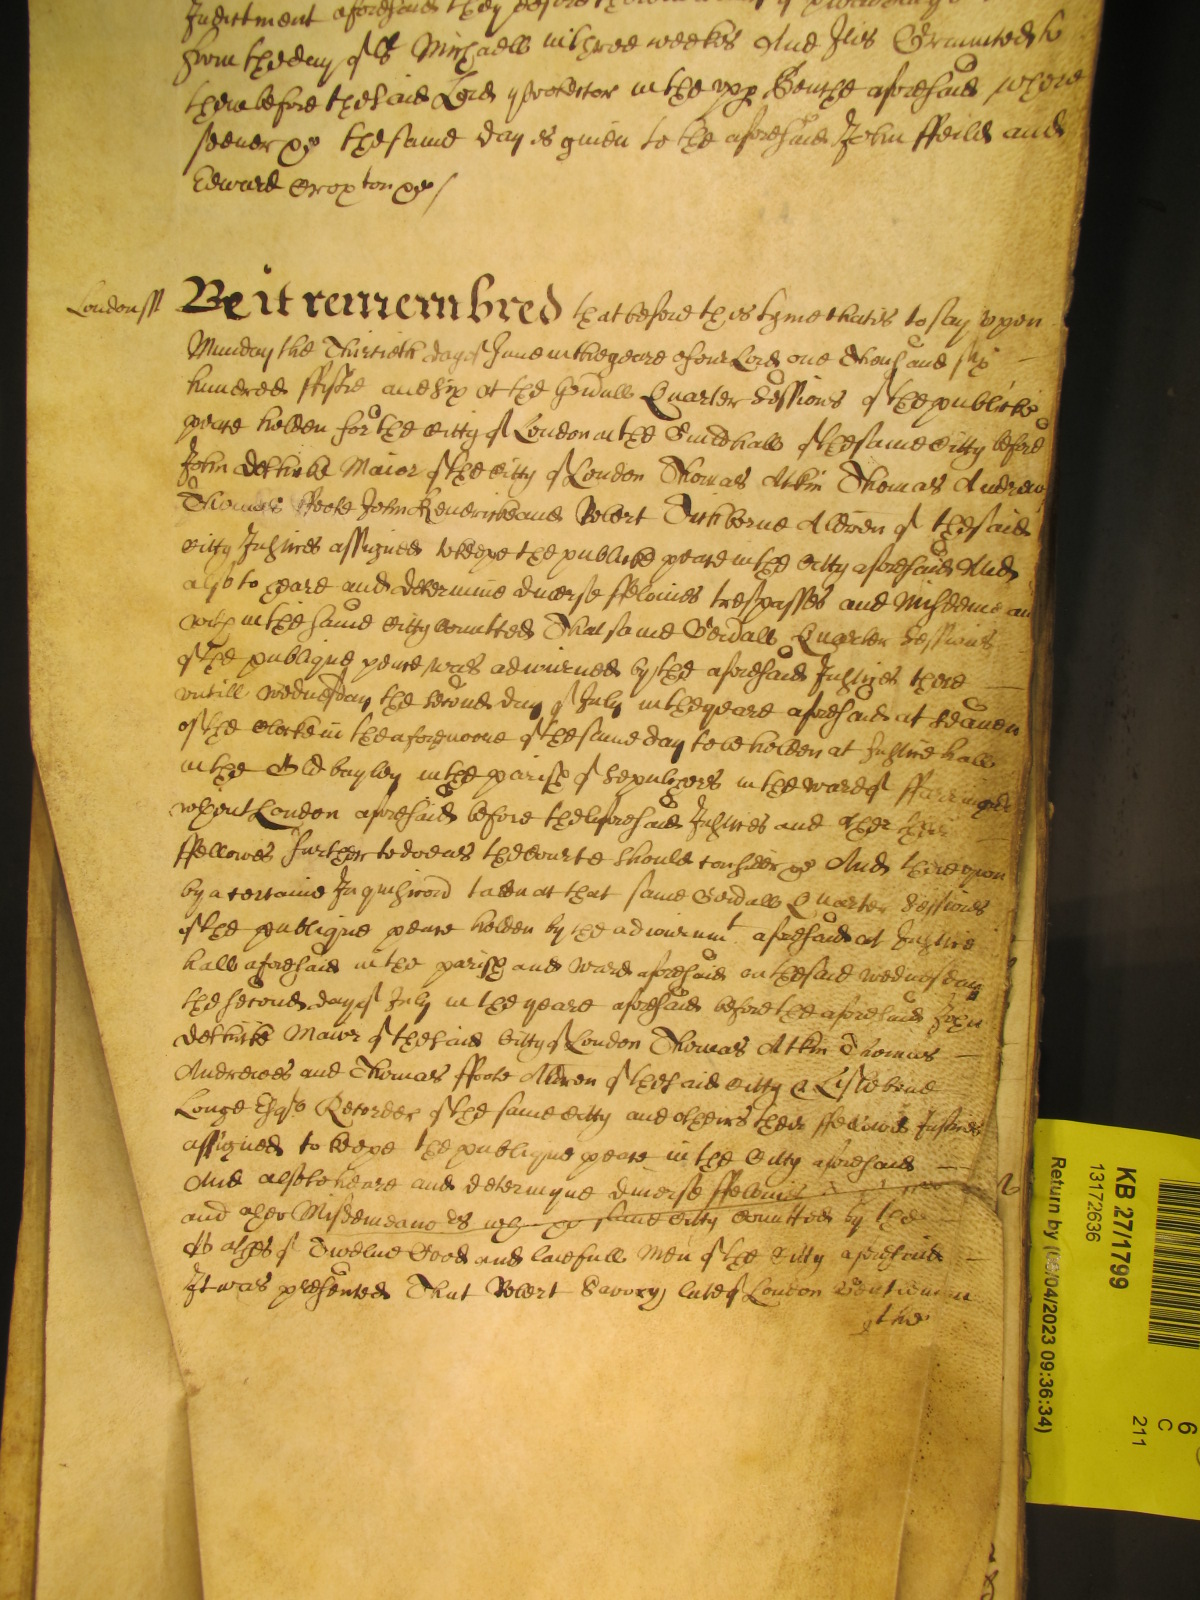 Indictment aforesaid they
from the day of St Michaell in three weekes And Iles Edmunds to
then before the said Lord p'tector in the upp Benche aforesaid where
soever &c the same day is given to the aforesaid John ffeild and
Edward Croxton &c/
London ss Be it remembred that before this tyme that is to say upon
Munday the Thirtieth day of June in the yeare of our Lord one Thousand six
hundred ffiftie and six at the Gen'all Quarter Sessions of the publicke
peace holden for the Citty of London in the Guildhall of the same Citty before
John Dethicke Maior of the Citty of London Thomas Atkin Thomas Andrew
Thomas ffoote John Kendricke and Robert Tichborne Aldren of the said
Citty Justices assigned to keepe the publicke peace in the Citty aforesaid And
also to heare and determine diverse ffelonies trespasses and Misdemean
within the same Citty comitted That same Gen'all Quarter Sessions
of the publique peace was adiourned by the aforesaid Justices there
untill Wednesday the second day of July in the yeare aforesaid at seaven
of the Clocke in the aforenoone of the same day to be holden at Justice hall
in the Old bayley in the parish of Sepulchers in the ward of ffarringdon
without London aforesaid before the aforesaid Justices and other their
ffellowes further to doe as the Courte should consider &c And thereupon
by a certaine Inquisicon taken at that same Gen'all Quarter Sessions
of the publique peace holden by the adiournmt aforesaid at Justice
hall aforesaid in the parish and Ward aforesaid on the said Wednesday
the second day of July in the yeare aforesaid before the aforesaid John
Dethicke Maior of the said Citty of London Thomas Atkin Thomas
Andrewes and Thomas ffoote Aldren of the said Citty Lislebone
Longe Esqr Recorder of the same Citty and others their ffellowes Justices
assigned to keepe the publique peace in the Citty aforesaid
And also to heare and determyne diverse ffelonies
and other Misdemeanors same Citty comitted by the
oathes of Twelve Good and lawfull Men of the Citty aforesaid
It was presented That Robert Savory late of London Gentleman
the
KB 27/1799
13172636
Return by (03/04/2023 09:36:34)
6
C
211